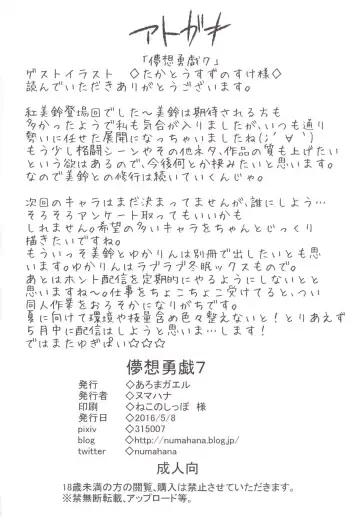 アトガキ
「儚想勇戯７」
ゲストイラスト　◇たかとうすずのすけ様◇
読んでいただきありがとうございます。
紅美鈴登場回でした～美鈴は期待される方も
多かったようで私も気合が入りましたが、いつも通り
勢いに任せた展開になっちゃいましたね(;´∀｀)
もう少し格闘シーンやその他ネタ、作品の質も上げたい
という欲はあるので、今後何とか挟みたいと思います。
なので美鈴との修行は続いていくんじゃ。
次回のキャラはまだ決まってませんが、誰にしよう…
そろそろアンケート取ってもいいかも
しれません。希望の多いキャラをちゃんとじっくり
描きたいですね。
もういっそ美鈴とゆかりんは別冊で出したいとも思
います。ゆかりんはラブラブ冬眠ックスもので。
あとはホント配信を定期的にやるようにしないとと
思いますね～。仕事をちょこちょこ受けてると、つい
同人作業をおろそかになりがちです。
夏に向けて環境や技量含め色々整えないと！とりあえず
５月中に配信はしようと思いま…します！
ではまたゆぎぱい☆☆☆
儚想勇戯７
発行　◇あろまガエル
発行者　◇ヌマハナ
印刷　◇ねこのしっぽ　様
発行日　◇2016/5/8
pixiv　◇315007
blog　◇http://numahana.blog.jp/
twitter　◇numahana
成人向
18歳未満の方の閲覧、購入は禁止させていただきます。
※禁無断転載、アップロード等。